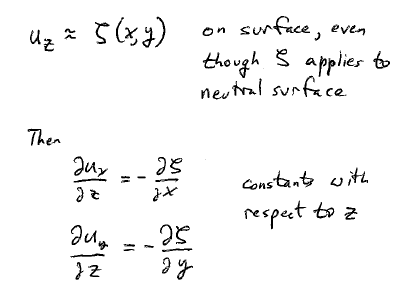 u_z ≈ ζ(x,y) on surface, even
though ζ applies to
neutral surface
Then
∂u_x/∂z = - ∂ζ/∂x
constants with
respect to z
∂u_y/∂z = - ∂ζ/∂y